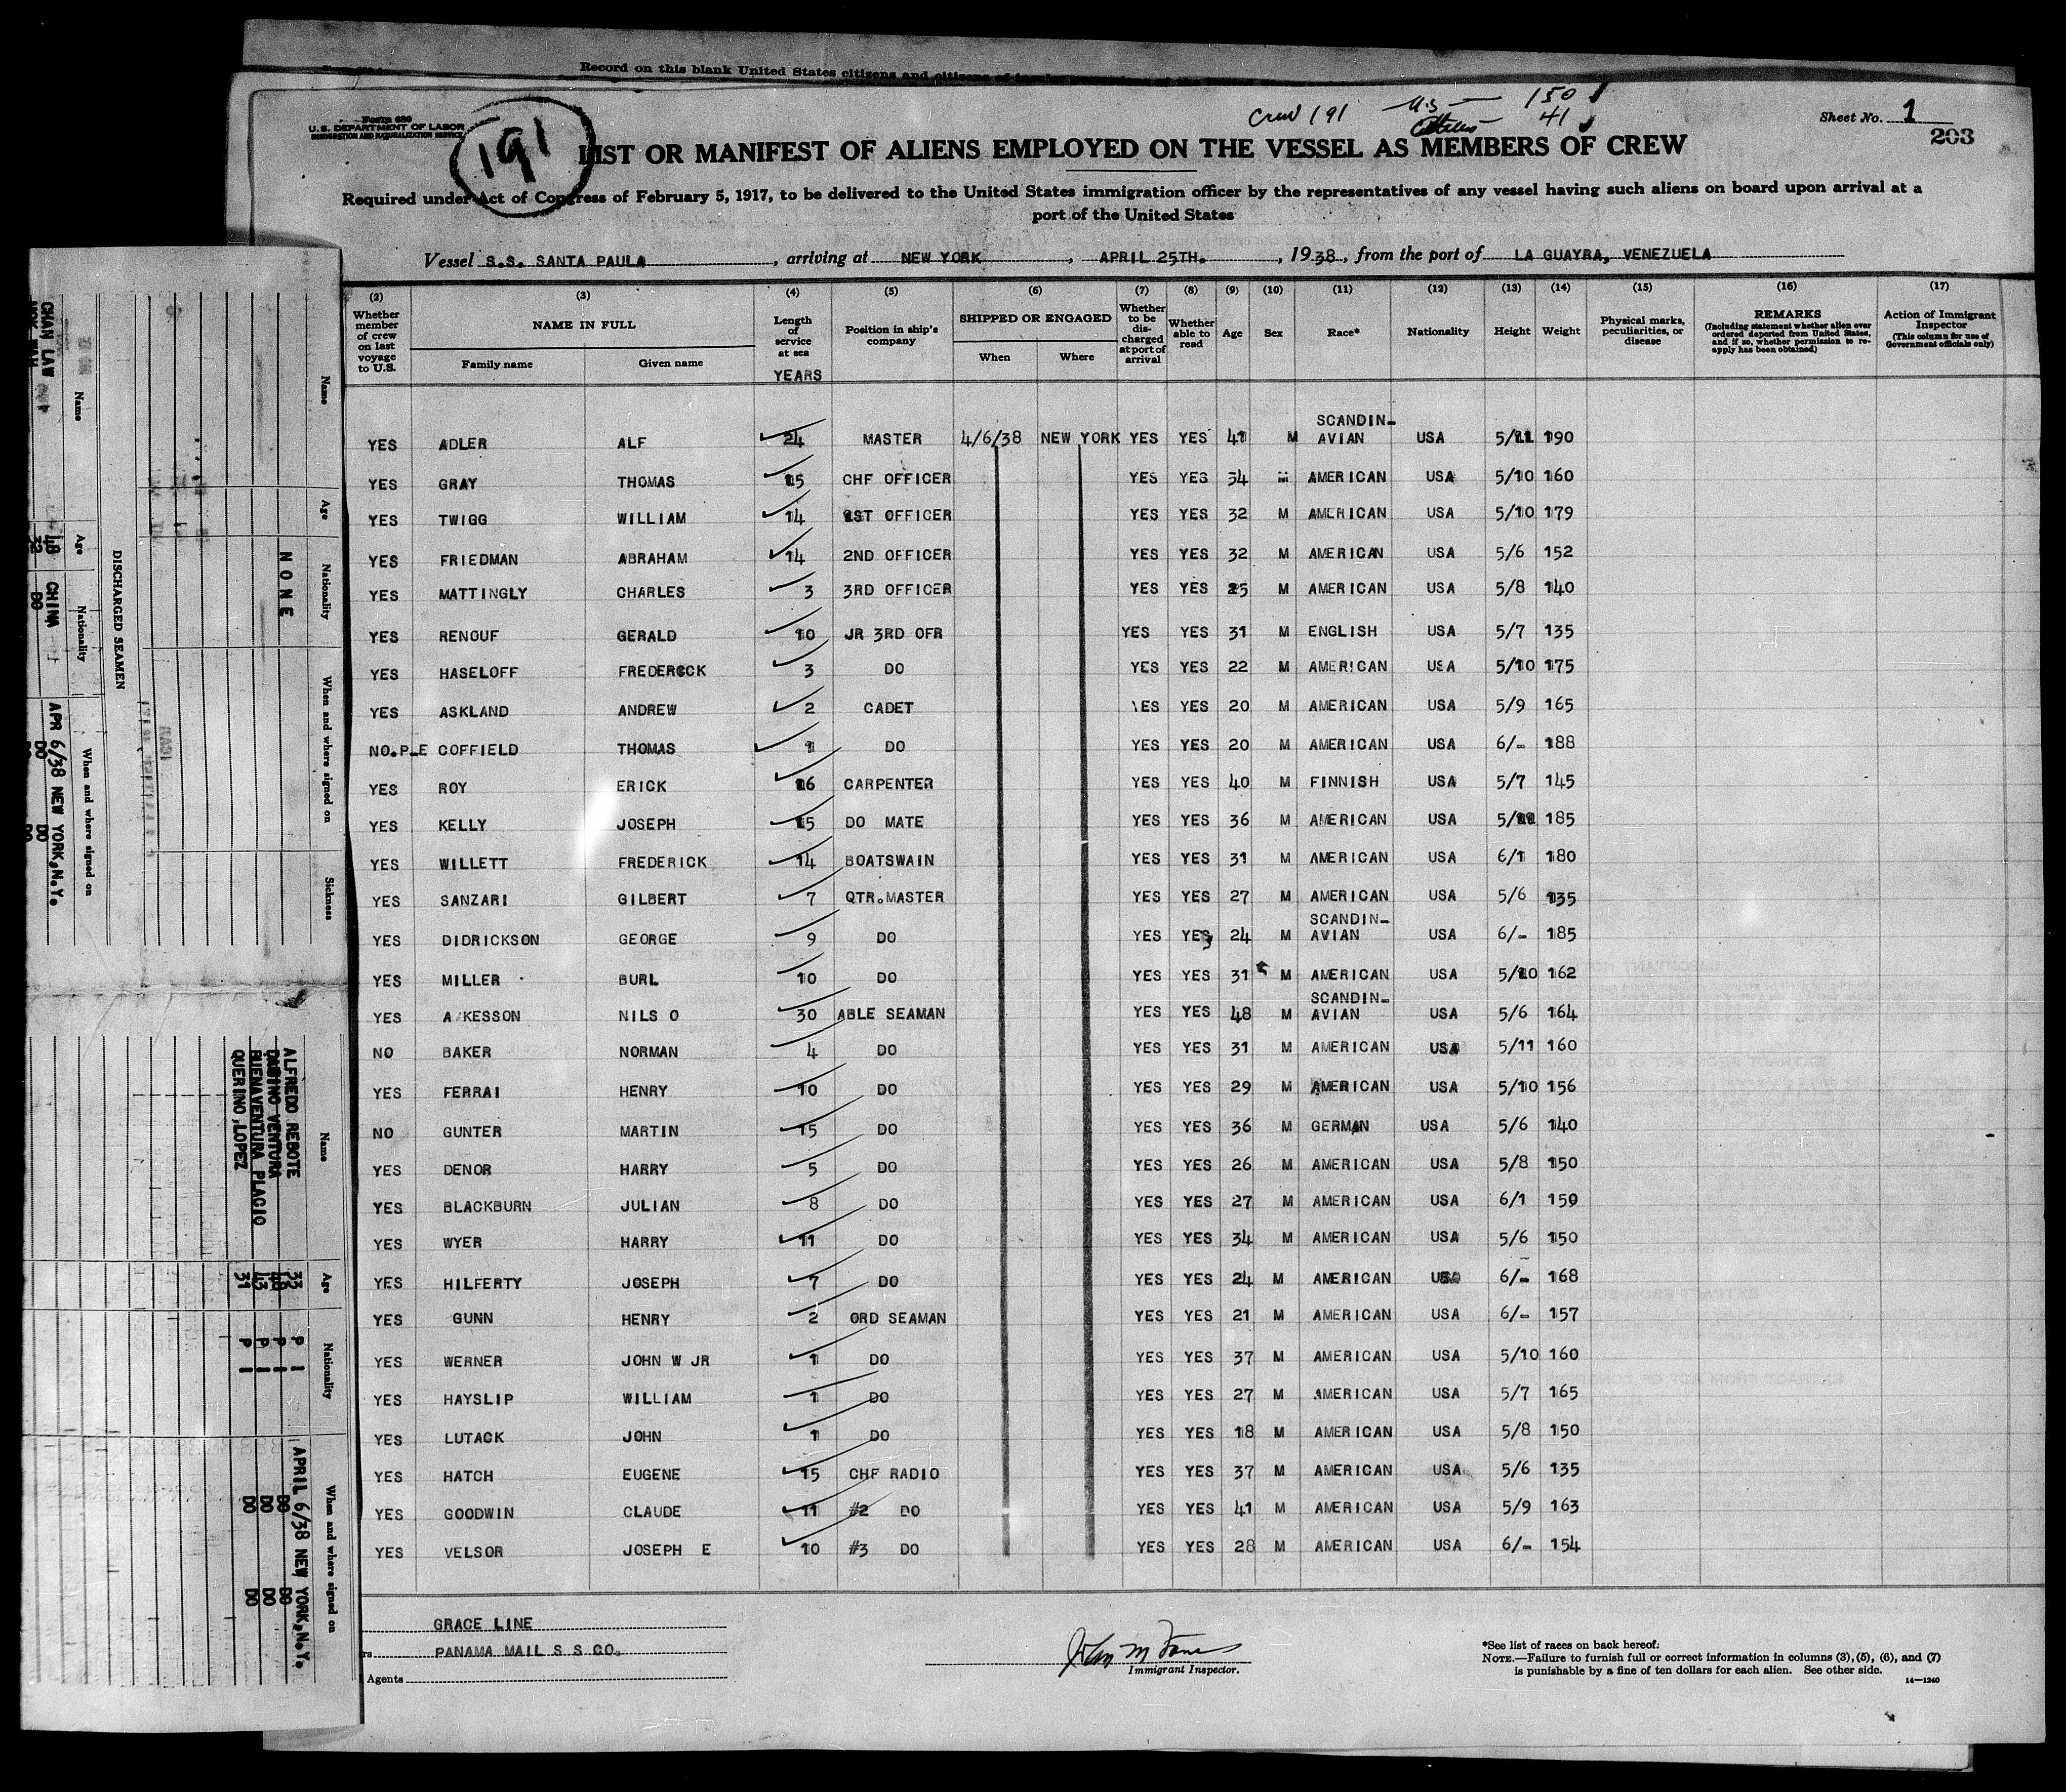 Record on this blank United States citizens and citizens of
Form 680
U.S. DEPARTMENT OF LABOR
IMMIGRATION AND NATURALIZATION SERVICE
191
Crew 191
U.S — 150
41
Sheet No. 1
203
LIST OR MANIFEST OF ALIENS EMPLOYED ON THE VESSEL AS MEMBERS OF CREW
Required under Act of Congress of February 5, 1917, to be delivered to the United States immigration officer by the representatives of any vessel having such aliens on board upon arrival at a
port of the United States
Vessel S.S. SANTA PAULA, arriving at NEW YORK, APRIL 25TH., 1938, from the port of LA GUAYRA, VENEZUELA
(2) (3) (4) (5) (6) (7) (8) (9) (10) (11) (12) (13) (14) (15) (16) (17)
Whether member of crew on last voyage to U.S.
NAME IN FULL
Family name
Given name
Length of service at sea
YEARS
Position in ship's company
SHIPPED OR ENGAGED
When
Where
Whether to be discharged at port of arrival
Whether able to read
Age
Sex
Race*
Nationality
Height
Weight
Physical marks, peculiarities, or disease
REMARKS
(Including statement whether alien ever ordered deported from United States, and if so, whether permission to re-apply has been obtained)
Action of Immigrant Inspector
(This column for use of Government officials only)
YES ADLER ALF 24 MASTER 4/6/38 NEW YORK YES YES 41 M SCANDIN-AVIAN USA 5/11 190
YES GRAY THOMAS 15 CHF OFFICER YES YES 34 M AMERICAN USA 5/10 160
YES TWIGG WILLIAM 14 1ST OFFICER YES YES 32 M AMERICAN USA 5/10 179
YES FRIEDMAN ABRAHAM 14 2ND OFFICER YES YES 32 M AMERICAN USA 5/6 152
YES MATTINGLY CHARLES 3 3RD OFFICER YES YES 25 M AMERICAN USA 5/8 140
YES RENOUF GERALD 10 JR 3RD OFR YES YES 31 M ENGLISH USA 5/7 135
YES HASELOFF FREDERCCK 3 DO YES YES 22 M AMERICAN USA 5/10 175
YES ASKLAND ANDREW 2 CADET YES YES 20 M AMERICAN USA 5/9 165
NO.P_E COFFIELD THOMAS 1 DO YES YES 20 M AMERICAN USA 6/- 188
YES ROY ERICK 16 CARPENTER YES YES 40 M FINNISH USA 5/7 145
YES KELLY JOSEPH 15 DO MATE YES YES 36 M AMERICAN USA 5/11 185
YES WILLETT FREDERICK 14 BOATSWAIN YES YES 31 M AMERICAN USA 6/1 180
YES SANZARI GILBERT 7 QTR.MASTER YES YES 27 M AMERICAN USA 5/6 135
YES DIDRICKSON GEORGE 9 DO YES YES 24 M SCANDIN-AVIAN USA 6/- 185
YES MILLER BURL 10 DO YES YES 31 M AMERICAN USA 5/10 162
YES A KESSON NILS O 30 ABLE SEAMAN YES YES 48 M SCANDIN-AVIAN USA 5/6 164
NO BAKER NORMAN 4 DO YES YES 31 M AMERICAN USA 5/11 160
YES FERRAI HENRY 10 DO YES YES 29 M AMERICAN USA 5/10 156
NO GUNTER MARTIN 15 DO YES YES 36 M GERMAN USA 5/6 140
YES DENOR HARRY 5 DO YES YES 26 M AMERICAN USA 5/8 150
YES BLACKBURN JULIAN 8 DO YES YES 27 M AMERICAN USA 6/1 159
YES WYER HARRY 11 DO YES YES 34 M AMERICAN USA 5/6 150
YES HILFERTY JOSEPH 7 DO YES YES 24 M AMERICAN USA 6/- 168
YES GUNN HENRY 2 ORD SEAMAN YES YES 21 M AMERICAN USA 6/- 157
YES WERNER JOHN W JR 1 DO YES YES 37 M AMERICAN USA 5/10 160
YES HAYSLIP WILLIAM 1 DO YES YES 27 M AMERICAN USA 5/7 165
YES LUTACK JOHN 1 DO YES YES 18 M AMERICAN USA 5/8 150
YES HATCH EUGENE 15 CHF RADIO YES YES 37 M AMERICAN USA 5/6 135
YES GOODWIN CLAUDE 11 #2 DO YES YES 41 M AMERICAN USA 5/9 163
YES VELSOR JOSEPH E 10 #3 DO YES YES 28 M AMERICAN USA 6/- 154
GRACE LINE
PANAMA MAIL S S CO.
Agents
Immigrant Inspector.
*See list of races on back hereof.
NOTE.—Failure to furnish full or correct information in columns (3), (5), (6), and (7)
is punishable by a fine of ten dollars for each alien. See other side.
14—1240
Name Age Nationality When and where signed on Sickness
NONE
DISCHARGED SEAMEN
Name Age Nationality When and where signed on
CHAN LAW 48 CHINA APR 6/38 NEW YORK,N.Y.
32 DO DO DO
Name Age Nationality When and where signed on
ALFREDO REBOTE 33 P I APRIL 6/38 NEW YORK,N.Y.
VENTURA P I DO DO
BUENAVENTURA PLACIO 43 P I DO DO
QUERINO,LOPEZ 31 P I DO DO